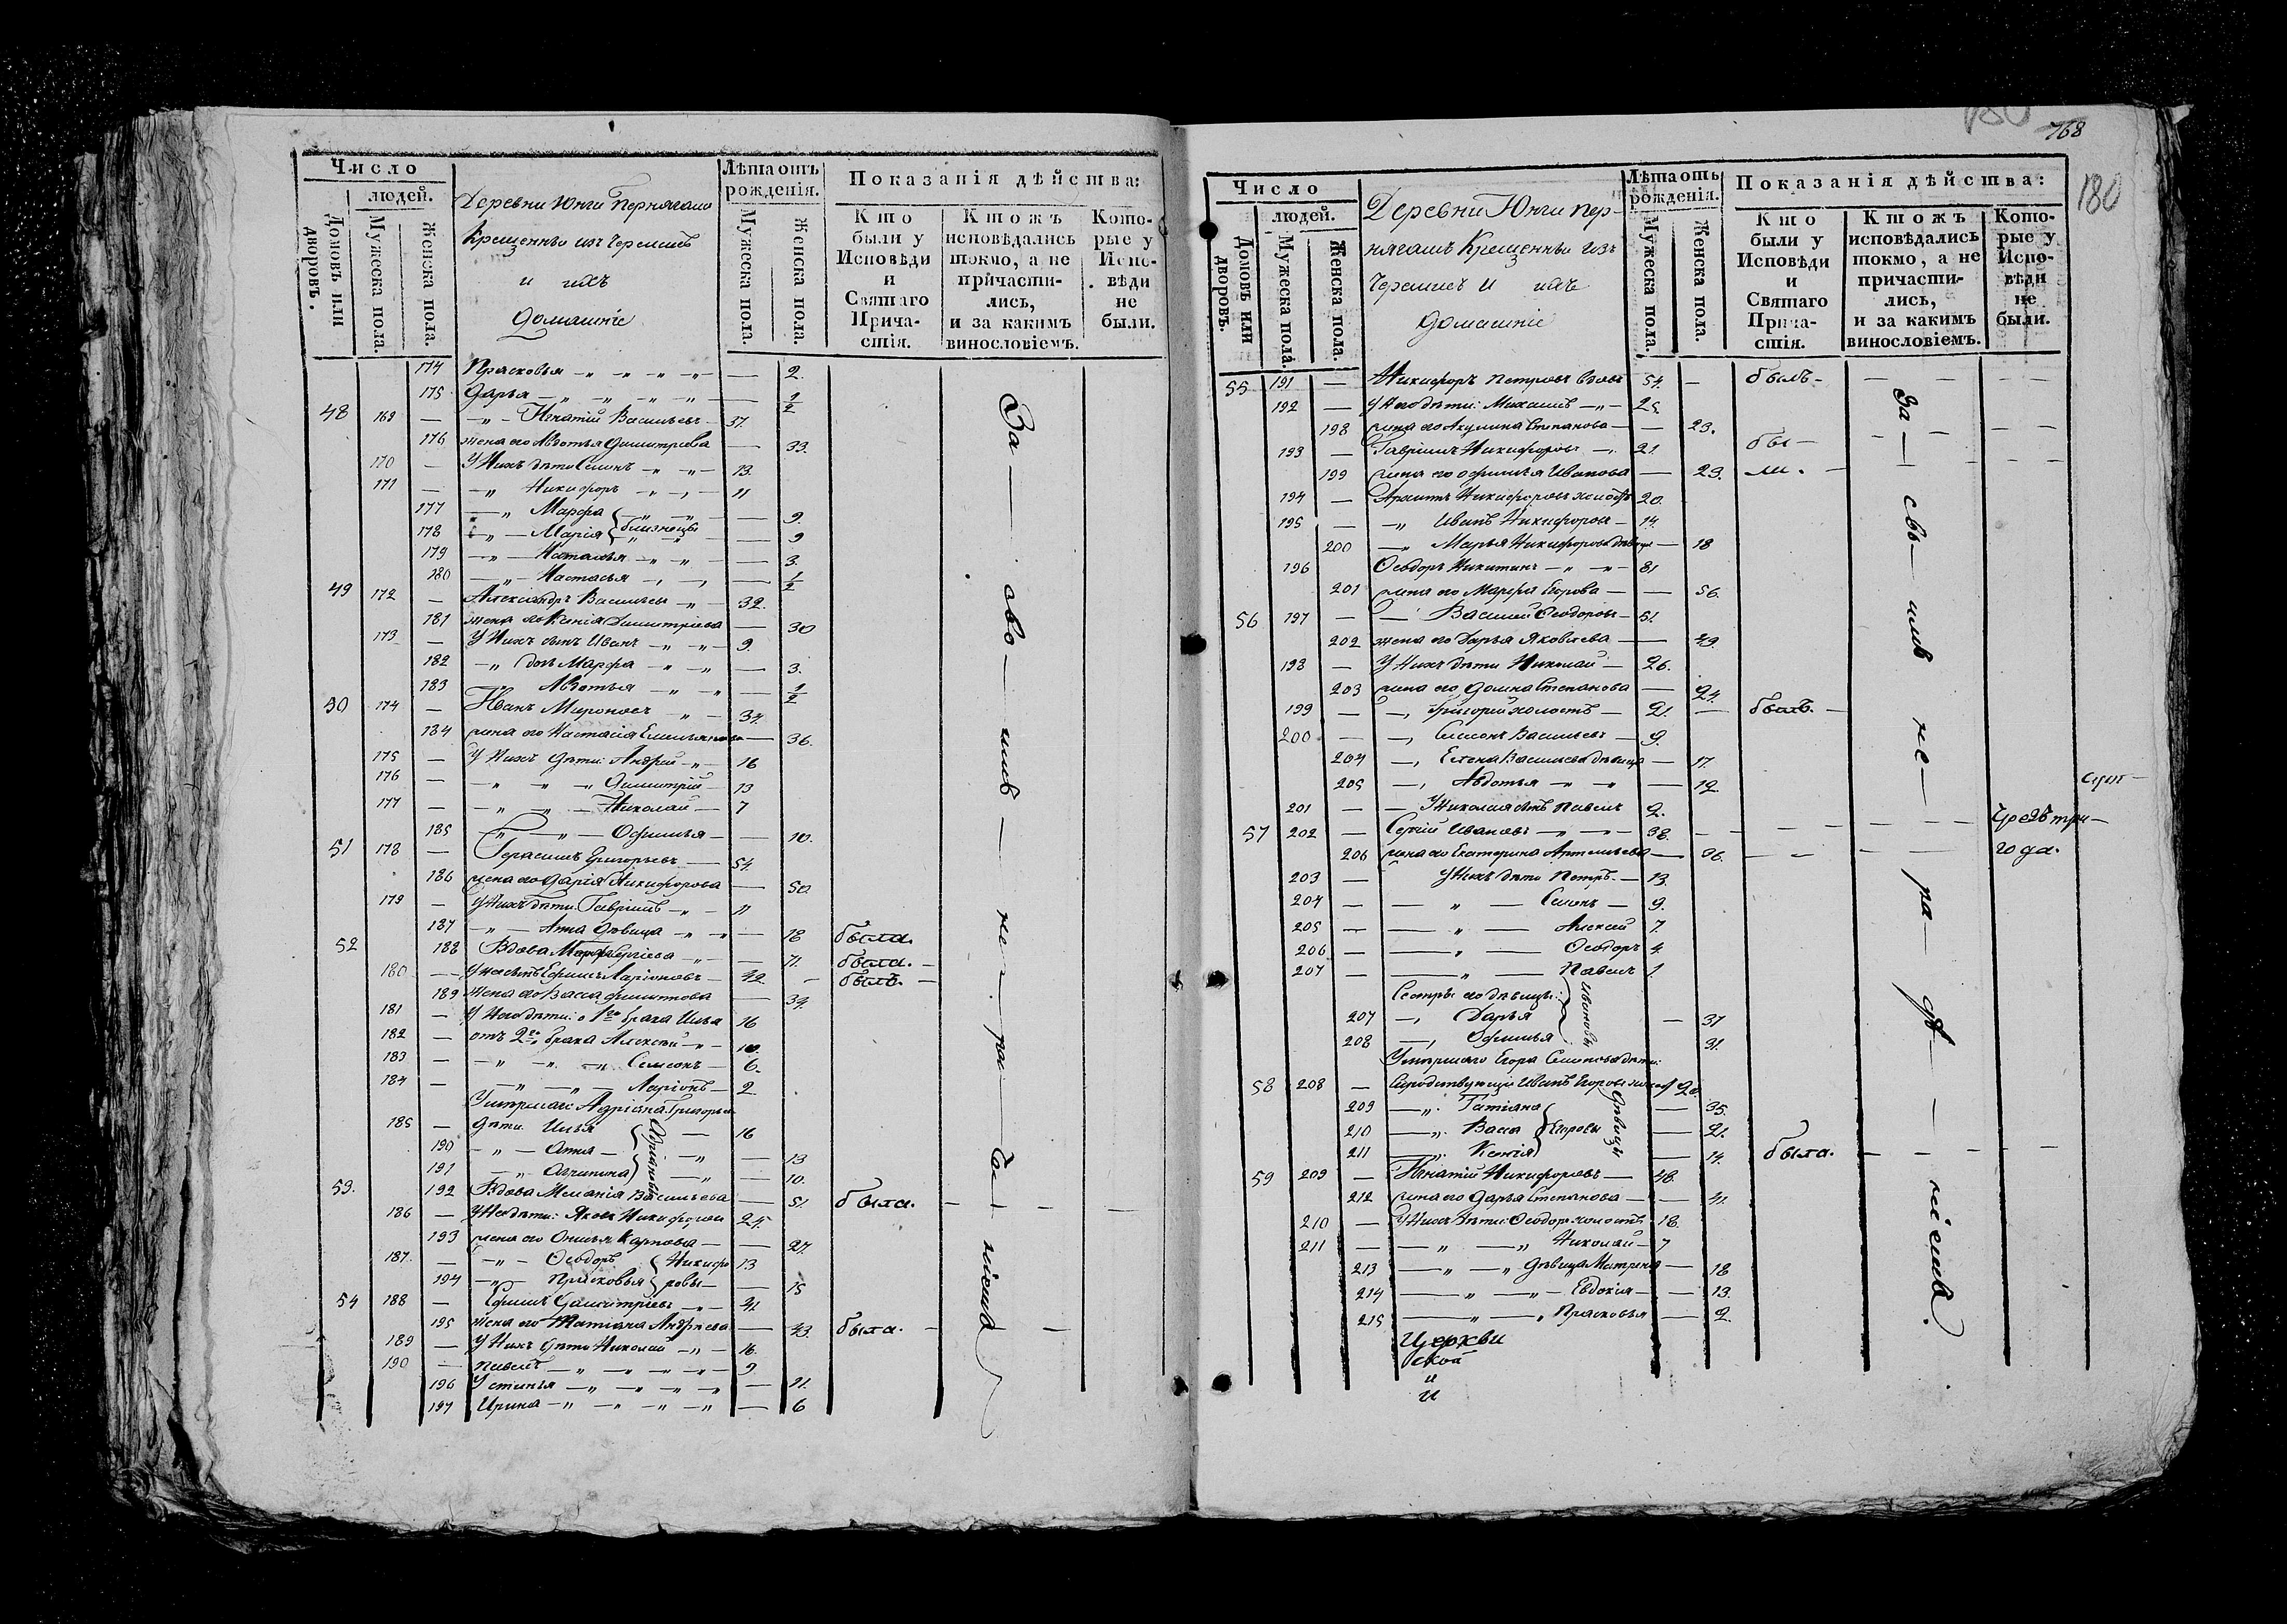 Число
людей.
Домовъ или дворовъ.
Мужеска пола.
Женска пола.
Деревни Юнги Пернягашъ
Крещенныи изъ Черемисъ
и ихъ
домашніе
Лѣта отъ рожденія.
Мужеска пола.
Женска пола.
Показанія дѣйства:
Кто были у Исповѣди и Святаго Причастія.
Ктожъ исповѣдались токмо, а не причастились, и за какимъ винословіемъ.
Которые у Исповѣди не были.
174 Прасковья — 2.
175 Дарья — 1/2
48 169 — Игнатій Васильевъ — 37.
176 жена его Авдотья Димитріева — 33.
170 — У Нихъ дѣти Симонъ — 13.
171 — Никифоръ — 11
177 — Марфа — 9.
178 — Марія близнецы — 9
179 — Наталья — 3.
180 — Настасья — 1/2
49 172 — Александръ Васильевъ — 32.
181 жена его Ксенія Димитріева — 30
173 — У Нихъ сынъ Иванъ — 9.
182 — дочь Марфа — 3.
183 — Авдотья — 1/2
50 174 — Иванъ Мироновъ — 34.
184 жена его Настасія Емельянова — 36.
175 — У Нихъ дѣти: Андрей — 16
176 — Димитрій — 13
177 — Николай — 7
185 — Офимья — 10.
51 178 — Герасимъ Григорьевъ — 54.
186 жена его Дарія Никифорова — 50.
179 — У Нихъ дѣти: Гавріилъ — 11
187 — Анна дѣвица — 18 была.
52 188 Вдова Сергіева — 71. была. —
180 — У нее сынъ Ефимъ Ларіоновъ — 42. — былъ. —
189 жена его Васса Филиппова — 34.
181 — У Него дѣти: о 1го брака Илья 16
182 — отъ 2го брака Алексѣй — 10.
183 — Симеонъ — 6.
184 — Ларіонъ — 2.
Умершаго Адріана Григорьева
185 — дѣти Илья — 16
190 — Анна — 13
191 — Агрипина — 10.
Адріановы
53. 192 Вдова Меланія Васильева — 51. была. —
186 — У Нея дѣти: Яковъ Никифоровъ 25.
193 жена его Карпова — 27.
187. — Ѳеодоръ Никифо 13
194 — Прасковья ровы — 15
54 188 — Ефимъ Димитріевъ — 41
195 жена его Татіана Андреева — 43. была. —
189 — У Нихъ дѣти Николай — 16.
190 — Павелъ — 9
196 Устинья — 21.
197 Ирина — 6
За — сво — имъ — не — ра — дѣ — ніемъ
768
180
Число
людей.
Домовъ или дворовъ.
Мужеска пола.
Женска пола.
Деревни Юнги Пер-
нягашъ Крещенныи изъ
Черемисъ и ихъ
домашніе
Лѣта отъ рожденія.
Мужеска пола.
Женска пола.
Показанія дѣйства:
Кто были у Исповѣди и Святаго Причастія.
Ктожъ исповѣдались токмо, а не причастились, и за какимъ винословіемъ.
Которые у Исповѣди не были.
55 191 — Никифоръ Петровъ вдовъ 54. — былъ —
192 — У Него дѣти: Михаилъ — 25.
198 жена его Акулина Степанова — 23.
193 — Гавріилъ Никифоровъ — 21. бы —
199 жена его Офимья Иванова — 23. ли. —
194 — Никифоровъ холостъ 20.
195 — Иванъ Никифоровъ — 14.
200 — Марья Никифорова дѣвица — 18
196 Ѳеодоръ Никитинъ — 81
201 жена его Марфа Егорова — 56.
56 197 — Василій Ѳеодоровъ — 51.
202 жена его Дарья Яковлева — 49.
198 — У Нихъ дѣти Николай — 26.
203 жена его Домна Степанова — 24.
199 — Григорій холостъ — 21. — былъ. —
200 — Симеонъ Васильевъ — 9.
204 — Елена Васильева дѣвица — 17.
205 — Авдотья — 12.
201 — У Николая сынъ Павелъ 2.
57 202 — Сергій Ивановъ — 38. — чрезъ три —
206 жена его Екатерина Артемьева — 36. — года.
203 — У Нихъ дѣти Петръ — 13.
204 — Симонъ — 9.
205 — Алексѣй 7.
206 — Ѳеодоръ 4.
207 — Павелъ 1.
Сестры его дѣвицы:
207 — Дарья — 37
208 — Офимья — 31.
Ивановы
Умершаго Егора Симонова дѣти:
58 208 — Сиротствующіе Иванъ Егоровъ холос 20.
209 — Татіана — 35.
210 — Васса Егоровы — 21.
211 — Ксенія — 14. была. —
дѣвицы
59 209 — Игнатій Никифоровъ — 48.
212 жена его Дарья Степанова — 41.
210 — У Нихъ дѣти: Ѳеодоръ холостъ 18.
211 — Николай — 7
213 — дѣвица Матрена — 18
214 — Евдокія — 13.
215 — Прасковья — 2.
Церкви
ской
и
и
За — сво — имъ не — ра — дѣ — ніемъ.